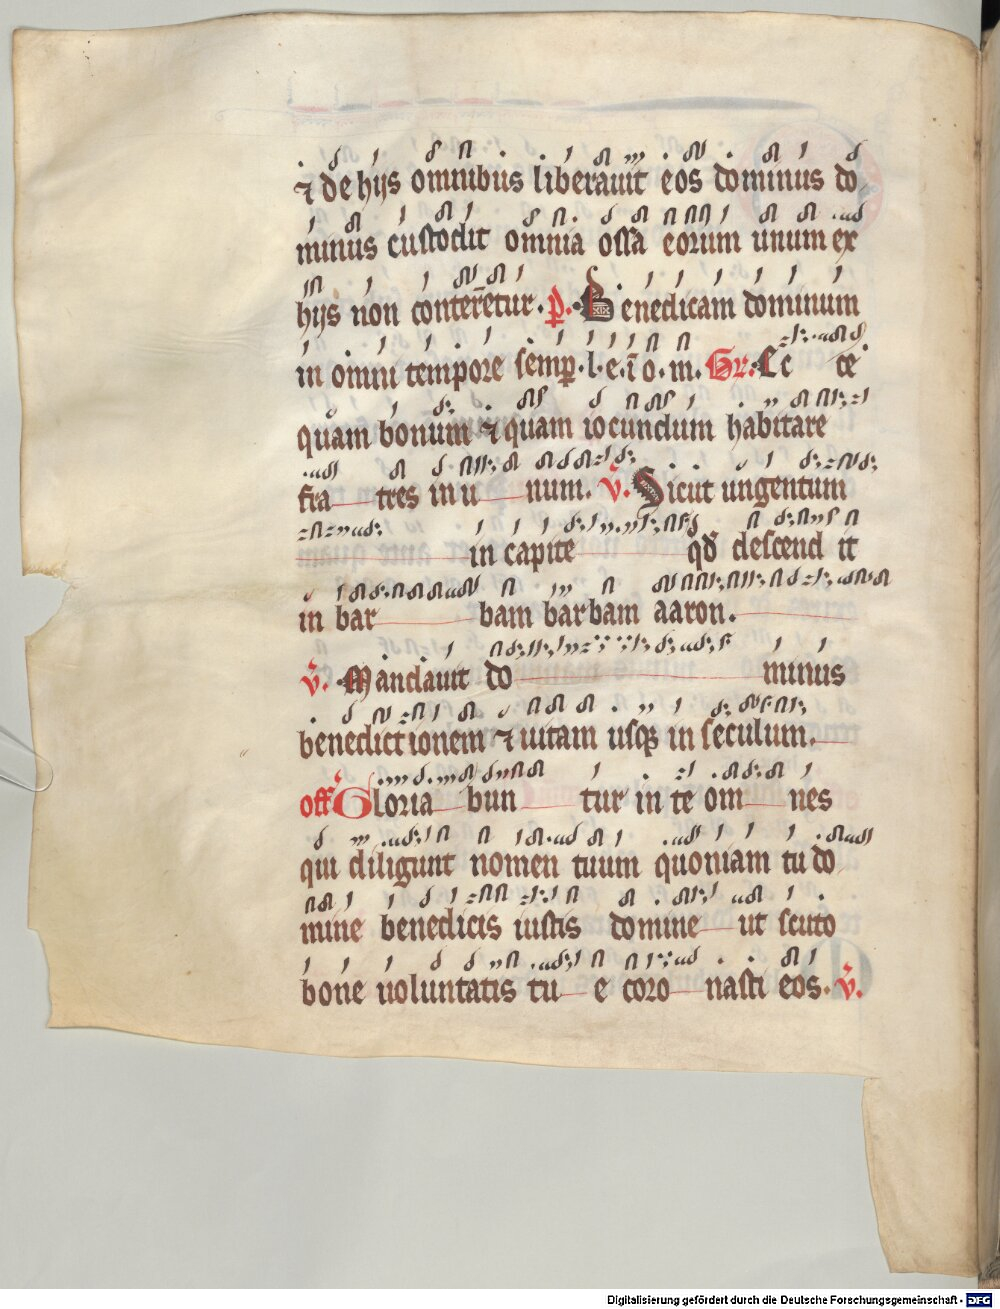 ⁊ de hijs omnibus liberauit eos dominus do
minus custodit omnia ossa eorum unum ex
hijs non conteret̄ur. p̄. Benedicam dominum
in omni tempore semꝑ. l. e. ī o. m. Gr. Ec ce
quam bonum ⁊ quam iocundum habitare
fra tres in u num. v̄. Sicut ungentum
in capite qd̄ descend it
in bar bam barbam aaron.
v̄. Mandauit do minus
benedictionem ⁊ uitam usqꝫ in seculum.
off̄ Gloria bun tur in te om nes
qui diligunt nomen tuum quoniam tu do
mine benedicis iustis domine ut scuto
bone uoluntatis tu e coro nasti eos. v̄.
Digitalisierung gefördert durch die Deutsche Forschungsgemeinschaft - DFG